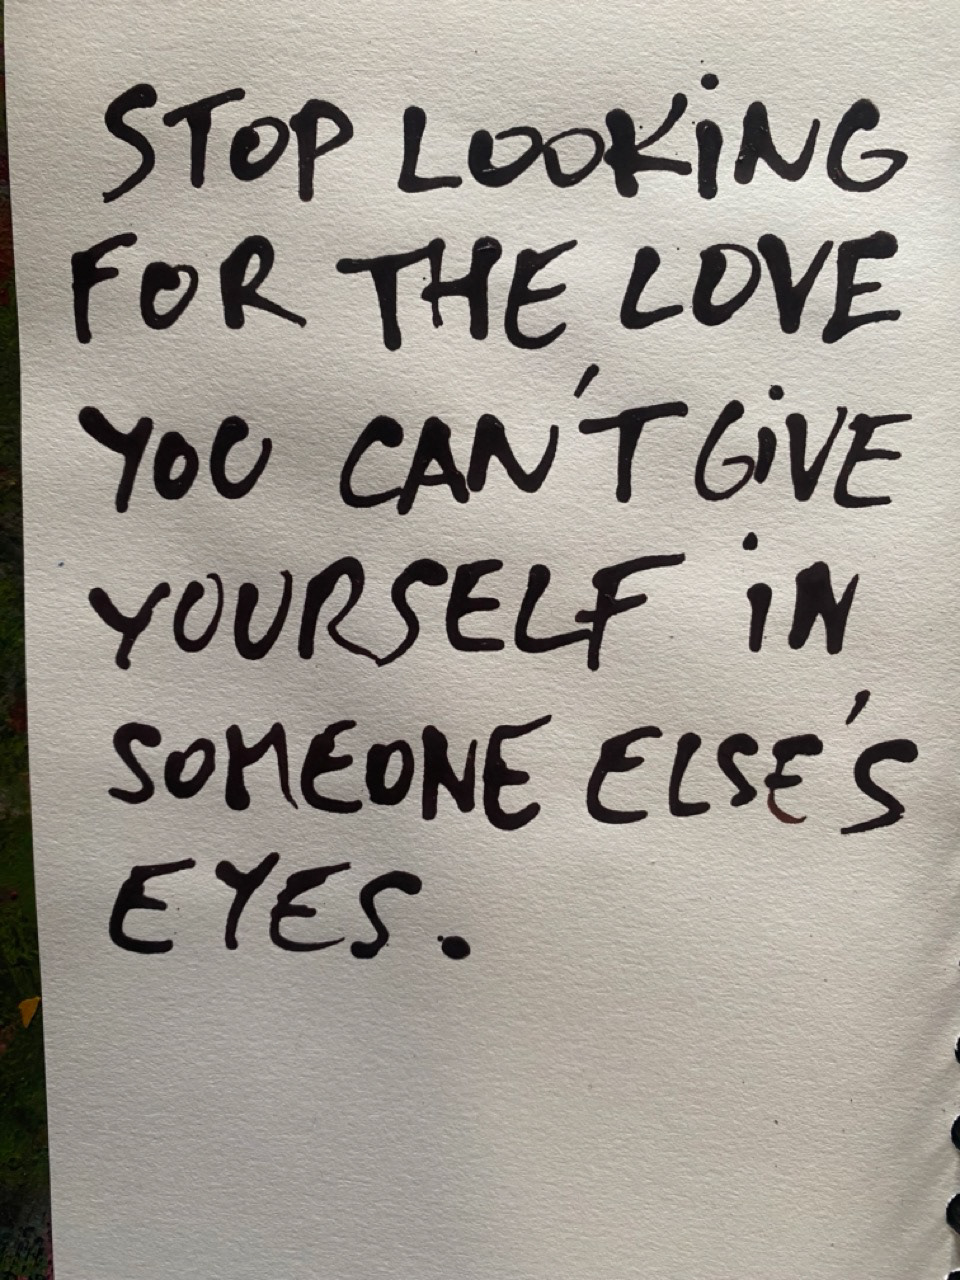 STOP LOOKING
FOR THE LOVE
YOU CAN'T GIVE
YOURSELF IN
SOMEONE ELSE'S
EYES.